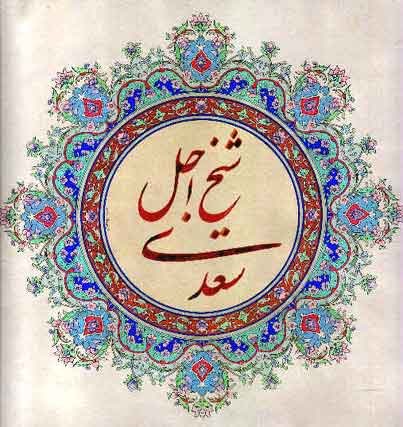 شیخ اجل
سعدی